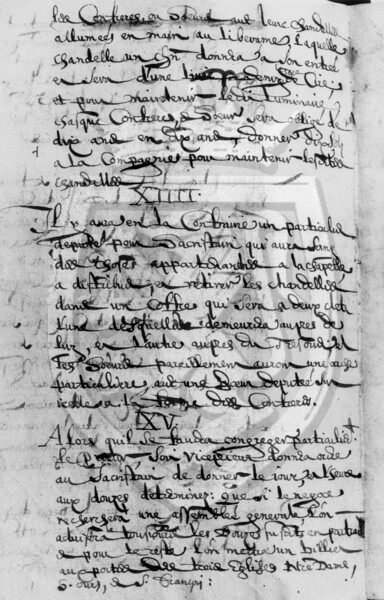 les Confreres, ou Soeurs aut leurs chandelles
allumées en main au liberame, laquelle
chandelle un chn donnera a son entrée
et sera d'une livre de Cire
et pour maintenir ledit luminaire
chasque Confreres, & Soeur sera obligé de
dix ans en dix ans, donner
a la Compagnie pour maintenir lesdites
chandelles
XIIII.
Il y aura en la Confrairie un particulier
deputé pour Sacristain qui aura soing
des choses appartenantes a la chapelle
a distribuer, et retirer les chandelles
dans un Coffre qui sera a deux clefs
l'une desquelles demeurera aupres de
luy, et l'autre aupres du
les Soeurs pareillement auront une
particuliere, avec une Soeur deputée
icelle a la des Confreres.
XV
Alors qu'il se faudra congreger particulie
le Prieur son Viceprieur donnera ordre
au Sacristain de donner le jour, et l'heure
aux douze determiner: que si le negoce
recherchera une assemblée generale, l'on
advisera tousjours les Douze susdits en particulier
& pour le reste l'on mettra un billet
aux portes des trois Eglises Nre Dame,
S. Louis, & St François: